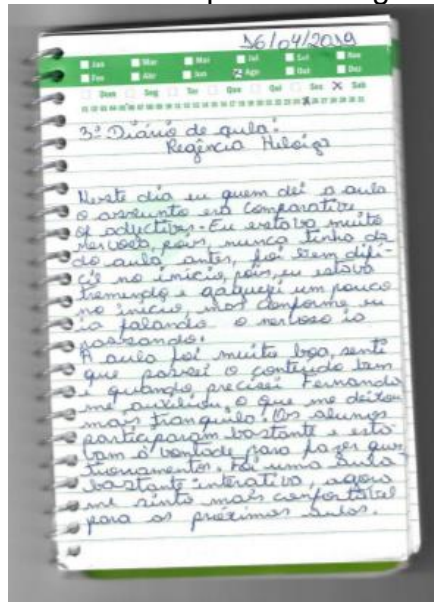 16/04/2019
Jan Mar Mai Jul Set Nov
Fev Abr Jun Ago Out Dez
Dom Seg Ter Qua Qui Sex Sab
3º Diário de aula:
Regência Heloiza
Neste dia eu quem dei a aula
o assunto era comparative
of adjectives. Eu estava muito
nervosa, pois, nunca tinha da
do aula antes, foi bem difi-
cil no início, pois, eu estava
tremendo e gaguejei um pouco
no início, mas conforme eu
ia falando o nervoso ia
passando.
A aula foi muito boa, senti
que passei o conteúdo bem
e quando precisei Fernanda
me auxiliou, o que me deixou
mais tranquila. Os alunos
participaram bastante e esta
vam à vontade para fazer ques
tionamentos. Foi uma aula
bastante interativa, agora
me sinto mais confortável
para as próximas aulas.